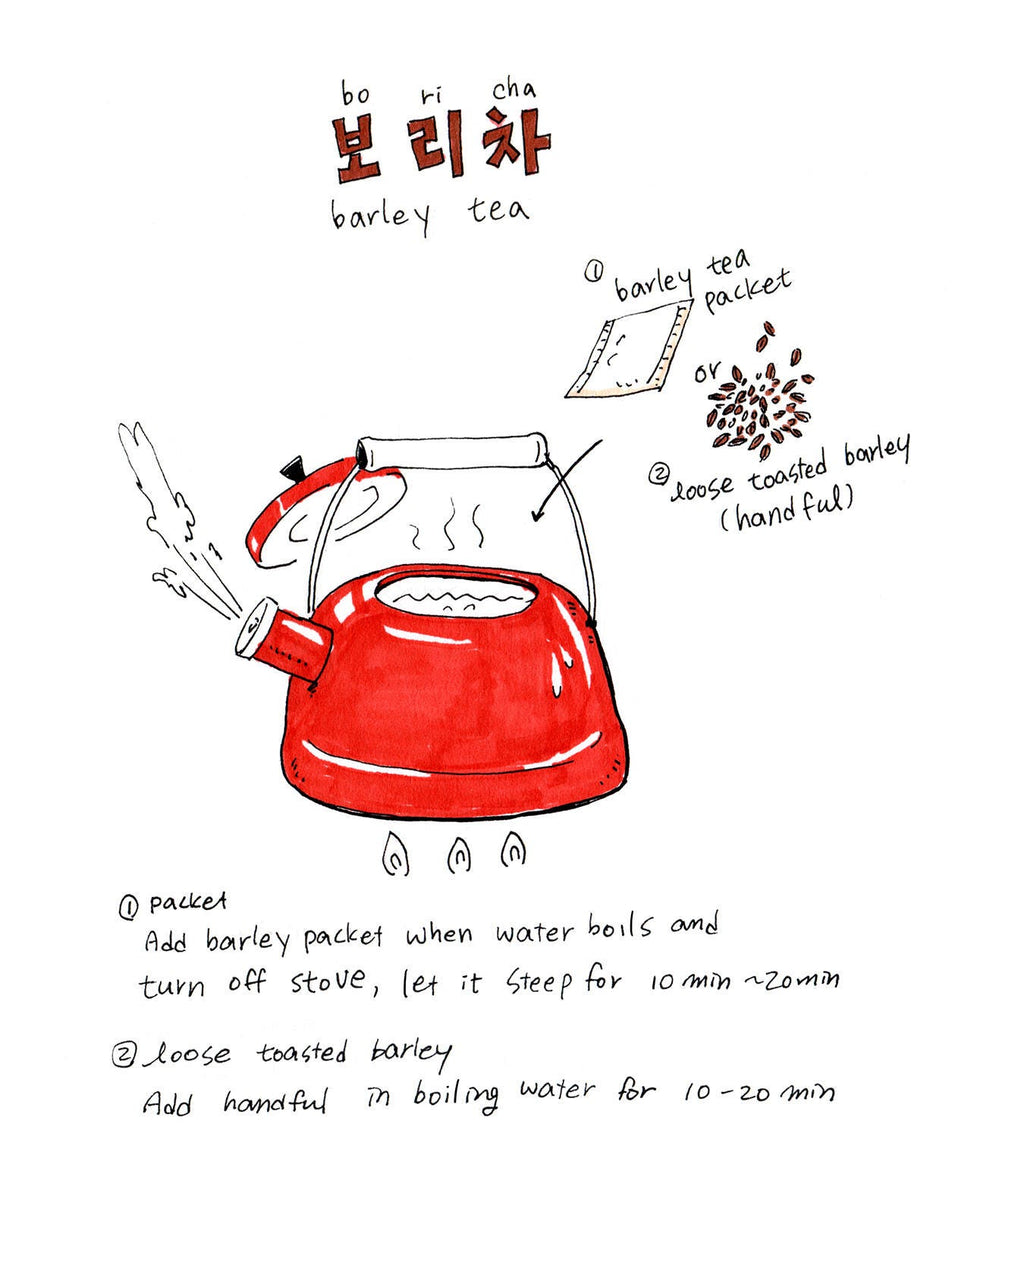 bo ri cha
보리차
barley tea
① barley tea
packet
or
② loose toasted barley
(handful)
① packet
Add barley packet when water boils and
turn off stove, let it steep for 10 min ~20min
② loose toasted barley
Add handful in boiling water for 10-20 min